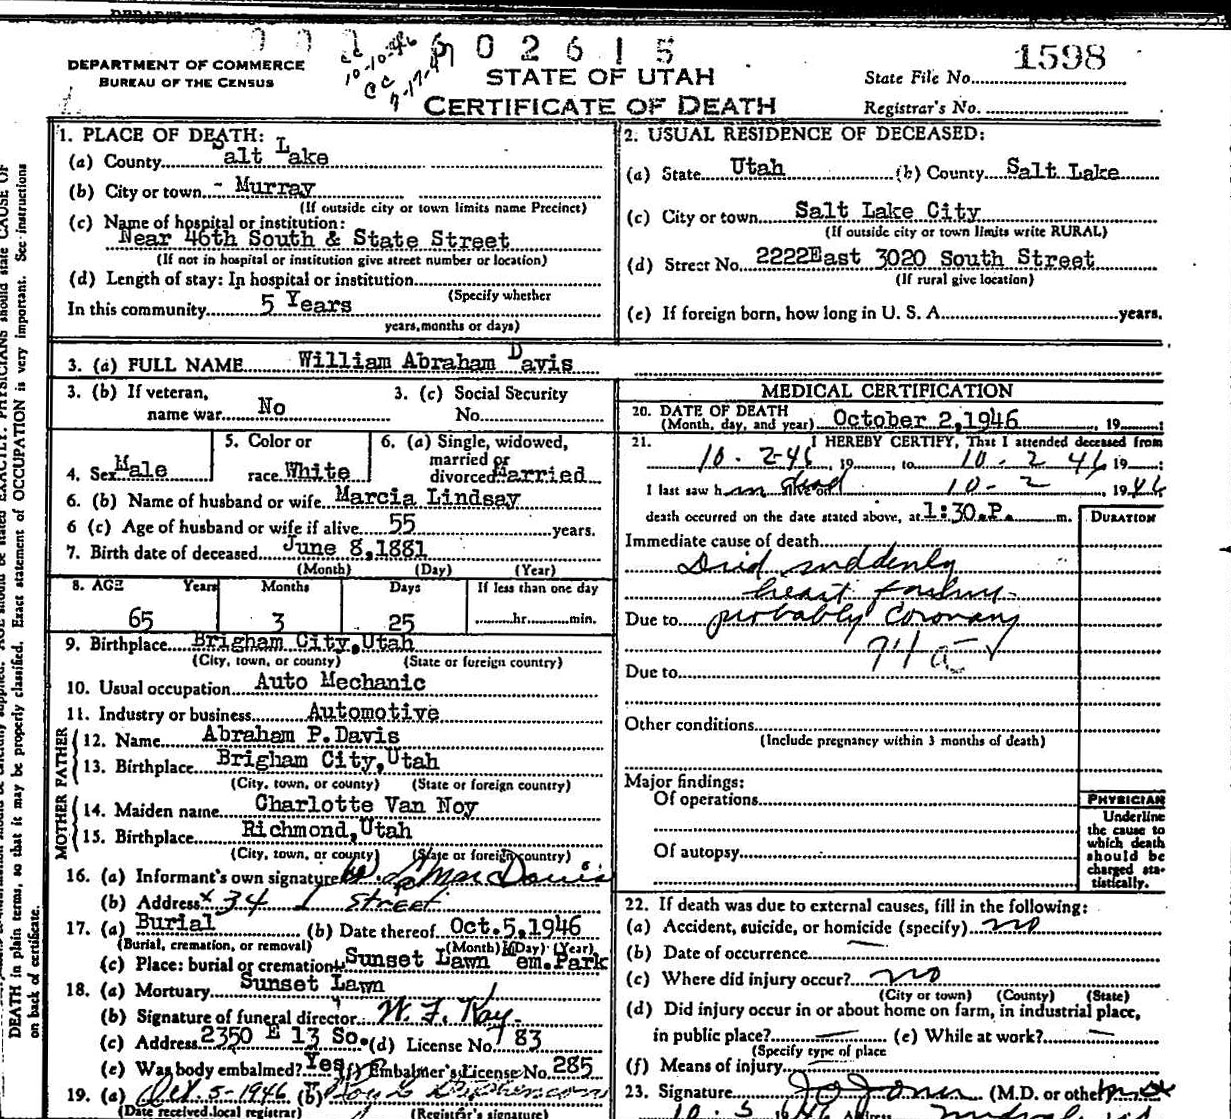 DEPARTMENT OF COMMERCE
BUREAU OF THE CENSUS
cc
10-10-46
cc
6 0 2 6 1 5
STATE OF UTAH
CERTIFICATE OF DEATH
1598
State File No.
Registrar's No.
DEATH in plain terms, so that it may be properly classified. Exact statement of OCCUPATION is very important. See instructions
on back of certificate.
1. PLACE OF DEATH:
(a) County Salt Lake
(b) City or town - Murray
(If outside city or town limits name Precinct)
(c) Name of hospital or institution:
Near 46th South & State Street
(If not in hospital or institution give street number or location)
(d) Length of stay: In hospital or institution
(Specify whether
In this community 5 Years
years, months or days)
2. USUAL RESIDENCE OF DECEASED:
(a) State Utah (b) County Salt Lake
(c) City or town Salt Lake City
(If outside city or town limits write RURAL)
(d) Street No. 2222East 3020 South Street
(If rural give location)
(e) If foreign born, how long in U. S. A. years.
3. (a) FULL NAME William Abraham Davis
3. (b) If veteran,
name war No
3. (c) Social Security
No.
4. Sex Male
5. Color or
race White
6. (a) Single, widowed,
married or
divorced Married
6. (b) Name of husband or wife Marcia Lindsay
6 (c) Age of husband or wife if alive 55 years.
7. Birth date of deceased June 8,1881
(Month) (Day) (Year)
8. AGE Years Months Days If less than one day
65 3 25 hr. min.
9. Birthplace Brigham City,Utah
(City, town, or county) (State or foreign country)
10. Usual occupation Auto Mechanic
11. Industry or business Automotive
FATHER
12. Name Abraham P.Davis
13. Birthplace Brigham City,Utah
(City, town, or county) (State or foreign country)
MOTHER
14. Maiden name Charlotte Van Noy
15. Birthplace Richmond,Utah
(City, town, or county) (State or foreign country)
16. (a) Informant's own signature Davis
(b) Address 34 Street
17. (a) Burial (b) Date thereof Oct.5,1946
(Burial, cremation, or removal) (Month) (Day) (Year)
(c) Place: burial or cremation Sunset Lawn Mem.Park
18. (a) Mortuary Sunset Lawn
(b) Signature of funeral director W. F. Kay
(c) Address 2350 E 13 So. (d) License No. 183
(e) Was body embalmed? Yes (f) Embalmer's License No. 285
19. (a) Oct 5-1946 (b)
(Date received local registrar) (Registrar's signature)
MEDICAL CERTIFICATION
20. DATE OF DEATH
(Month, day, and year) October 2,1946 , 19 ;
21. I HEREBY CERTIFY, That I attended deceased from
10-2-46, 19 , to 10-2 46 19 ;
I last saw him dead 10-2 , 1946
death occurred on the date stated above, at 1:30.P. m.
DURATION
Immediate cause of death
Died suddenly
heart failure-
Due to probably Coronary
94a
Due to
Other conditions
(Include pregnancy within 3 months of death)
Major findings:
Of operations
Of autopsy
PHYSICIAN
Underline
the cause to
which death
should be
charged sta-
tistically.
22. If death was due to external causes, fill in the following:
(a) Accident, suicide, or homicide (specify) no
(b) Date of occurrence
(c) Where did injury occur? no
(City or town) (County) (State)
(d) Did injury occur in or about home on farm, in industrial place,
in public place? (e) While at work?
(Specify type of place
(f) Means of injury
23. Signature (M.D. or other)
10 5 1946 Address